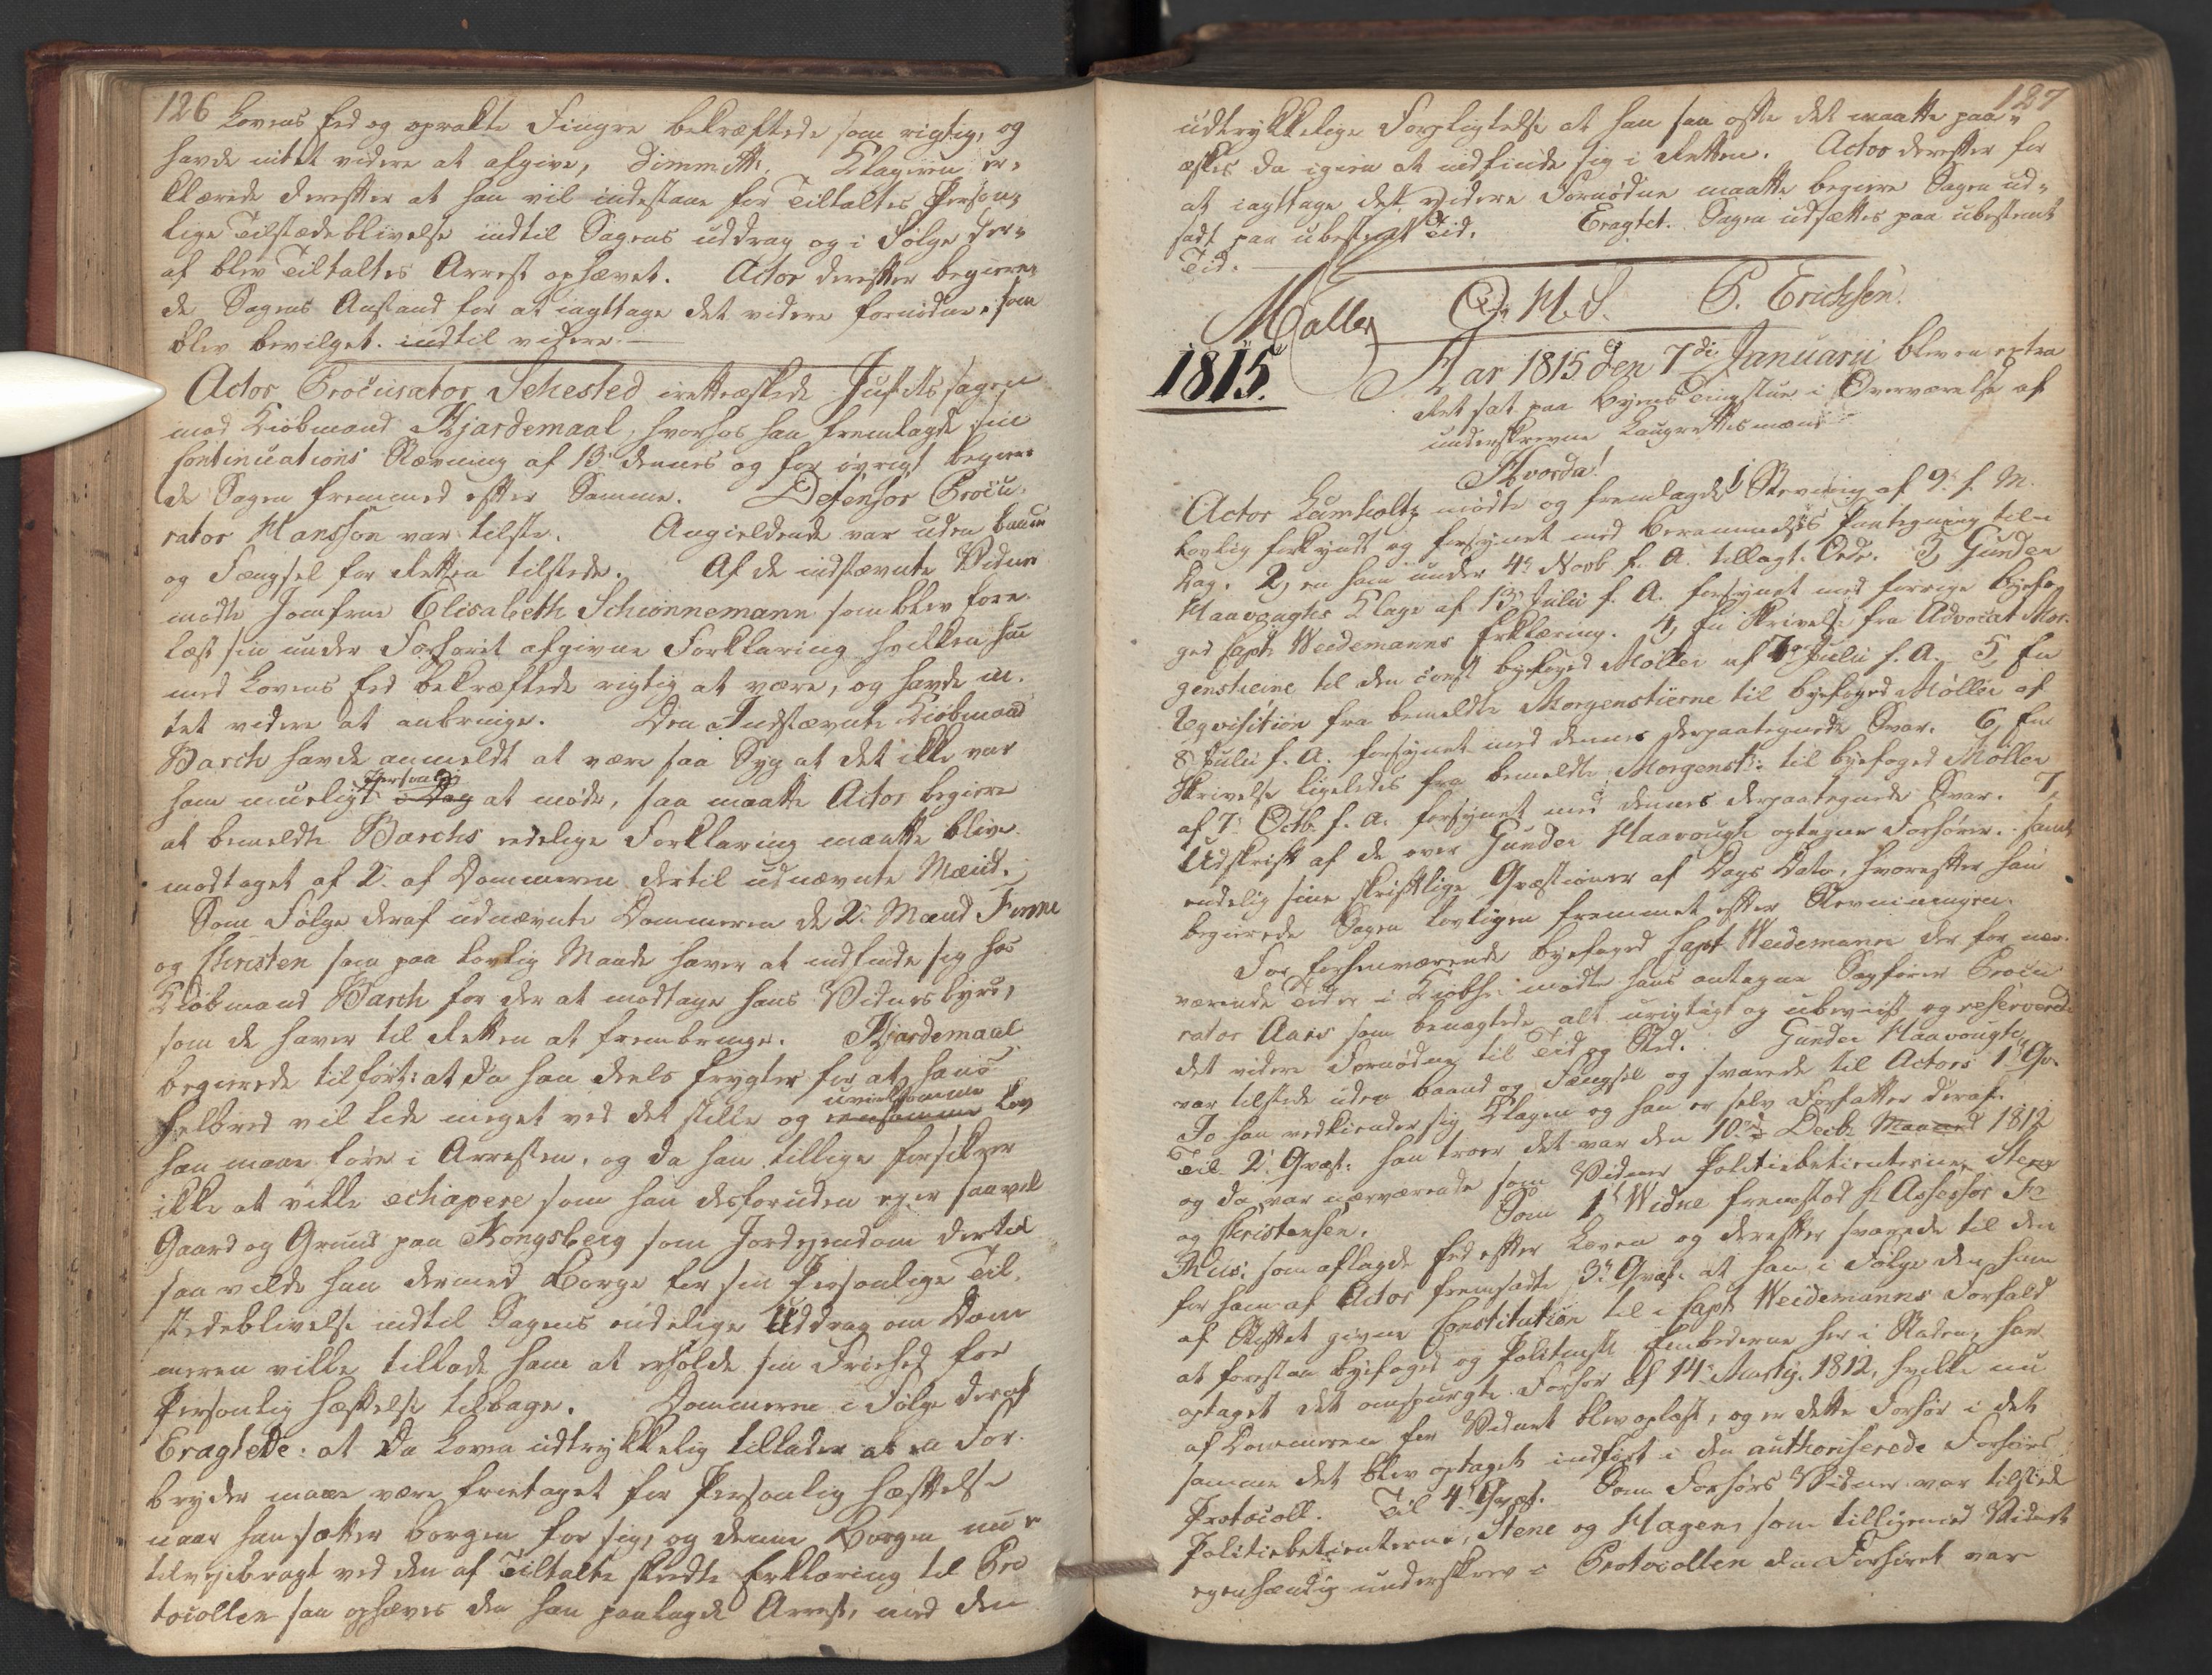 126
Lovens Eed og oprakte Fingre bekræftede som rigtig, og
havde intet videre at afgive, Dimmitt. Klageren er-
klærede derefter at han vil indestaae for Tiltaltes Person-
lige Tilstædeblivelse indtil Sagens uddrag og i Følge der-
af blev Tiltaltes Arrest ophævet. Actor derefter begiere-
de Sagens Anstand for at iagttage det videre fornødne, som
blev bevilget indtil videre.
Actor Procurator Sehested irettesatte Justitssagen
mod Kiøbmand Hjardemaal, hvorhos han fremlagde sin
Continuations Stævning af 13 dennes og for øvrigt begiere-
de Sagen fremmed efter Samme. Defensor Procu-
rator Hansson var tilstede. Angieldende var uden baand
og Fængsel for Retten tilstede. Af de indstævnte Vidner
mødte Jomfrue Elisabeth Schiønnemann som blev fore-
læst sin under Forhøret afgivne Forklaring hvilken hun
med Lovens Eed bekræftede rigtig at være, og havde in-
tet videre at anbringe. Den Indstævnte Kiøbmand
Barch havde anmeldt at være saa Syg at det ikke var
ham mueligt Personlig i Dag at møde, saa maatte Actor begiere
at bemeldte Barchs eedelige Forklaring maatte blive
modtaget af 2 af Dommeren dertil udnævnte Mænd.
Som Følge deraf udnævnte Dommeren de 2 Mænd
og Christen som paa lovlig Maade haver at indfinde sig hos
Kiøbmand Barch for der at modtage hans Vidnesbyrd,
som de haver til Retten at frembringe. Hjardemaal
begierede tilført: at da han deels frygter for at hans
Helbred vil lide meget ved det stille og uvirksomme eensomme Lev
han maae føre i Arresten, og da han tillige forsikrer
ikke at ville echapere som han desforuden eyer saavel
Gaard og Grund paa Kongsberg som Jordejendom dertil
saa vilde han dermed Borge for sin Personlige Til-
stedeblivelse indtil Sagens endelige Uddrag om Dom-
meren ville tillade ham at erholde sin Friehed for
Personlig hæftelse tilbage. Dommeren i Følge deraf
Eragtede: at da Loven udtrykkelig tillader at en For-
bryder maae være frietaget for Personlig hæftelse
naar han sætter borgen for sig, og denne Borgen nu er
tilvejebragt ved den af Tiltalte skeedte Erklæring til Pro
tocollen saa ophæves den ham paalagde Arrest, med den
127
udtrykkelige Forpligtelse at han saa ofte det maatte paa-
æskes da igien at indfinde sig i Retten. Actor derefter for
at iagttage det videre Fornødne maatte begiere Sagen ud-
sadt paa ubestemt Tid. Eragtet. Sagen udsættes paa ubestemt
Tid.
Møller O. H. S. P. Erichsen.
1815.
Aar 1815 den 7de Januarii blev en extra
Ret sat paa Byens Tingstue i Overværelse af
underskrevne Laugrettesmænd
Hvorda!
Actor Lumholtz mødte og fremlagde 1 Stevning af 9 f. M.
lovlig forkyndt og forsynet med Berammelses Paategning til
Dag. 2, en ham under 4 Novb. f. A. tillagt Ordr. 3, Gunder
Haavougtes Klage af 13 Julii f. A. forsynet med forrige Byefo-
ged Capt. Weidemanns Erklæring. 4, En Skrivelse fra Advocat Mor-
genstierne til den const. Byefoged Møller af 7de Julii f. A. 5, En
Reqvisition fra bemeldte Morgenstierne til Byefoged Møller af
8 Julii f. A. forsynet med dennes derpaategnede Svar. 6, En
Skrivelse ligeledes fra bemeldte Morgenst: til Byefoged Møller
af 7 Octb. f. A. forsynet med dennes derpaategnede Svar. 7,
Udskrift af de over Gunder Haavougt optagne Forhører. samt
endelig sine skriftlige Qvæstioner af Dags Dato, hvorefter han
begierede Sagen lovligen fremmet efter Stevningen.
For forhenværende Byefoged Capt Weidemann der for nær-
værende Tid er i Kiøbh: mødte hans antagne Sagfører Procu
rator Aars som benægtede alt urigtigt og ubeviist og reserverede
det videre Fornødne til Tid og Sted. Gunder Haavougten
var tilstede uden baand og Fængsel og svarede til Actors 1 Qv.
Jo han vedkiender sig Klagen og han er selv Forfatter deraf.
Til 2 Qvæst: han troer det var den 10de Decbr Maaned 1812
og da var nærværende som Vidner Politiebetienterne Stene
og Christensen. Som 1 Widne fremstod H. Assessor
som aflagde Eed efter Loven og derefter svarede til den
for ham af Actor fremsadte 3 Qvæst: at han i Følge den ham
af Stiftet givne Constitution til i Capt Weidemanns Forfald
at forestaae Byefoged og Politimest: Embederne her i Staden, har
optaget det omspurgte Forhør af 14 1812, hvilket nu
af Dommeren for Vidnet blev oplæst, og er dette Forhør i det
samme det blev optaget indført i den authoriserede Forhørs
Protocoll. Til 4 Qvæst. Som Forhørs Vidner var tilstede
Politiebetienterne, Stene og Hagen, som tilligemed Vidnet
egenhændig underskrev i Protocollen da Forhøret var